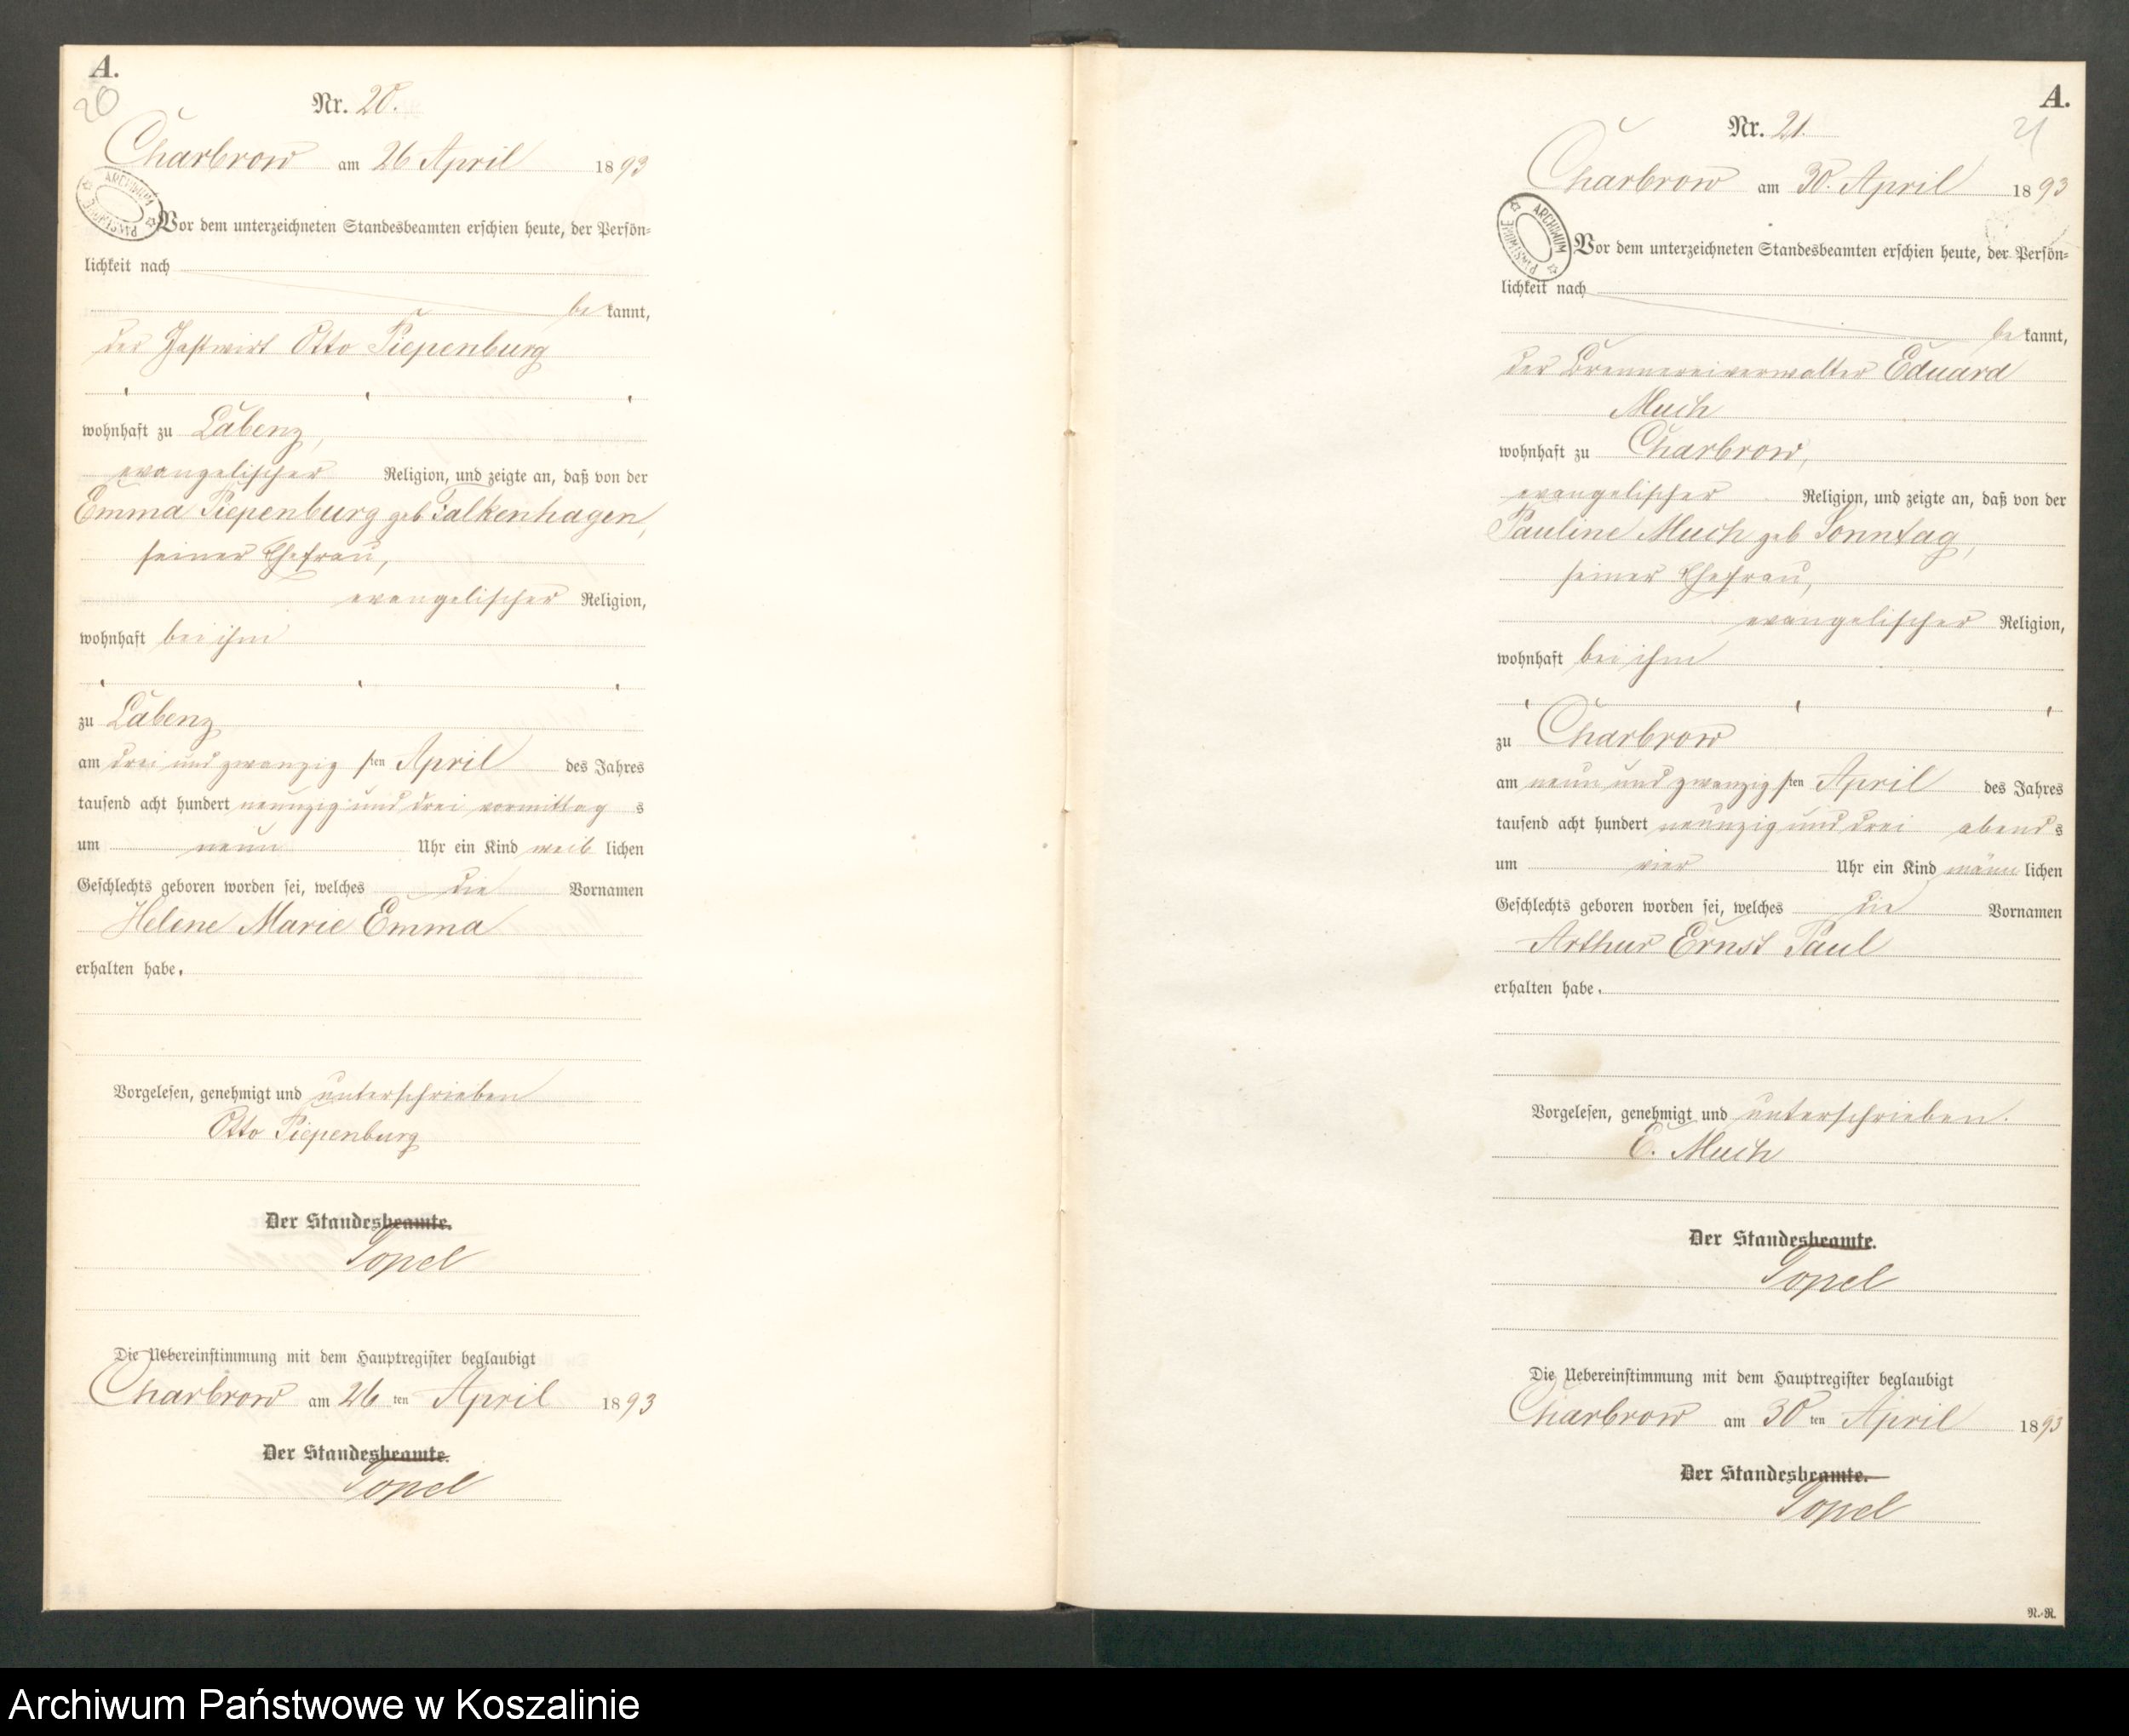 A.
20
Nr. 20.
Charbrow am 26 April 1893
ARCHIWUM PAŃSTWOWE
Vor dem unterzeichneten Standesbeamten erschien heute, der Persön=
lichkeit nach
be kannt,
der Gastwirt Otto Piepenburg
wohnhaft zu Labenz,
evangelischer Religion, und zeigte an, daß von der
Emma Piepenburg geb Falkenhagen,
seiner Ehefrau,
evangelischer Religion,
wohnhaft bei ihm
zu Labenz
am drei und zwanzig sten April des Jahres
tausend acht hundert neunzig und drei vormittag s
um neun Uhr ein Kind weib lichen
Geschlechts geboren worden sei, welches die Vornamen
Helene Marie Emma
erhalten habe.
Vorgelesen, genehmigt und unterschrieben
Otto Piepenburg
Der Standesbeamte.
Topel
Die Uebereinstimmung mit dem Hauptregister beglaubigt
Charbrow am 26 ten April 1893
Der Standesbeamte.
Topel
A.
21
Nr. 21.
Charbrow am 30. April 1893
ARCHIWUM PAŃSTWOWE
Vor dem unterzeichneten Standesbeamten erschien heute, der Persön=
lichkeit nach
be kannt,
der Brennereiverwalter Eduard
Much
wohnhaft zu Charbrow,
evangelischer Religion, und zeigte an, daß von der
Pauline Much geb Sonntag,
seiner Ehefrau,
evangelischer Religion,
wohnhaft bei ihm
zu Charbrow
am neun und zwanzig sten April des Jahres
tausend acht hundert neunzig und drei abend s
um vier Uhr ein Kind männ lichen
Geschlechts geboren worden sei, welches die Vornamen
Arthur Ernst Paul
erhalten habe.
Vorgelesen, genehmigt und unterschrieben.
E. Much
Der Standesbeamte.
Topel
Die Uebereinstimmung mit dem Hauptregister beglaubigt
Charbrow am 30 ten April 1893
Der Standesbeamte.
Topel
N.-R.
Archiwum Państwowe w Koszalinie